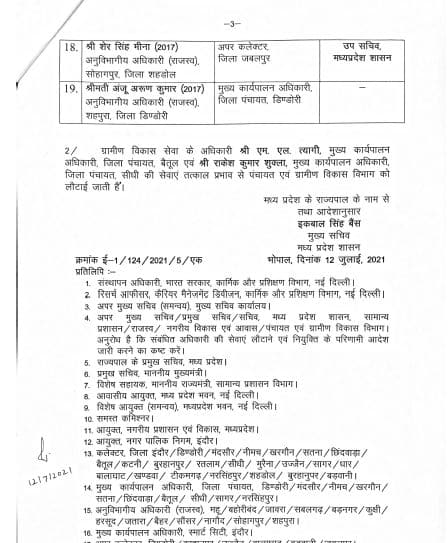 —3—
18. श्री शेर सिंह मीना (2017) अपर कलेक्टर, उप सचिव,
अनुविभागीय अधिकारी (राजस्व), जिला जबलपुर मध्यप्रदेश शासन
सोहागपुर, जिला शहडोल
19. श्रीमती अंजू अरूण कुमार (2017) मुख्य कार्यपालन अधिकारी, —
अनुविभागीय अधिकारी (राजस्व), जिला पंचायत, डिण्डोरी
शहपुरा, जिला डिण्डोरी
2/ ग्रामीण विकास सेवा के अधिकारी श्री एम. एल. त्यागी, मुख्य कार्यपालन
अधिकारी, जिला पंचायत, बैतूल एवं श्री राकेश कुमार शुक्ला, मुख्य कार्यपालन अधिकारी,
जिला पंचायत, सीधी की सेवाएं तत्काल प्रभाव से पंचायत एवं ग्रामीण विकास विभाग को
लौटाई जाती हैं।
मध्य प्रदेश के राज्यपाल के नाम से
तथा आदेशानुसार
इकबाल सिंह बैंस
मुख्य सचिव
मध्य प्रदेश शासन
क्रमांक ई-1/124/2021/5/एक भोपाल, दिनांक 12 जुलाई, 2021
प्रतिलिपि :-
1. संस्थापन अधिकारी, भारत सरकार, कार्मिक और प्रशिक्षण विभाग, नई दिल्ली।
2. रिसर्च आफीसर, कैरियर मैनेजमेंट डिवीजन, कार्मिक और प्रशिक्षण विभाग, नई दिल्ली।
3. अपर मुख्य सचिव (समन्वय), मुख्य सचिव कार्यालय।
4. अपर मुख्य सचिव/प्रमुख सचिव/सचिव, मध्य प्रदेश शासन, सामान्य
प्रशासन/राजस्व/ नगरीय विकास एवं आवास/पंचायत एवं ग्रामीण विकास विभाग।
अनुरोध है कि संबंधित अधिकारी की सेवाएं लौटाने एवं नियुक्ति के परिणामी आदेश
जारी करने का कष्ट करें।
5. राज्यपाल के प्रमुख सचिव, मध्य प्रदेश।
6. प्रमुख सचिव, माननीय मुख्यमंत्री।
7. विशेष सहायक, माननीय राज्यमंत्री, सामान्य प्रशासन विभाग।
8. आवासीय आयुक्त, मध्य प्रदेश भवन, नई दिल्ली।
9. विशेष आयुक्त (समन्वय), मध्यप्रदेश भवन, नई दिल्ली।
10. समस्त कमिश्नर।
11. आयुक्त, नगरीय प्रशासन एवं विकास, मध्यप्रदेश।
12. आयुक्त, नगर पालिक निगम, इंदौर।
13. कलेक्टर, जिला इंदौर/डिण्डोरी/मंदसौर/नीमच/खरगौन/सतना/छिंदवाड़ा/
बैतूल/कटनी/ बुरहानपुर/ रतलाम/सीधी/ मुरैना/उज्जैन/सागर/धार/
बालाघाट/खण्डवा/ टीकमगढ़/नरसिंहपुर/शहडोल/ बुरहानपुर/बड़वानी।
14. मुख्य कार्यपालन अधिकारी, जिला पंचायत, डिण्डोरी/मंदसौर/नीमच/खरगौन/
सतना/छिंदवाड़ा/ बैतूल/ सीधी/सागर/नरसिंहपुर।
15. अनुविभागीय अधिकारी (राजस्व), महू/बहोरीबंद/जावरा/सबलगढ़/बड़नगर/कुक्षी/
हरसूद/जतारा/बैहर/सौंसर/नागौद/सोहागपुर/शहपुरा।
16. मुख्य कार्यपालन अधिकारी, स्मार्ट सिटी, इंदौर।
12/7/2021